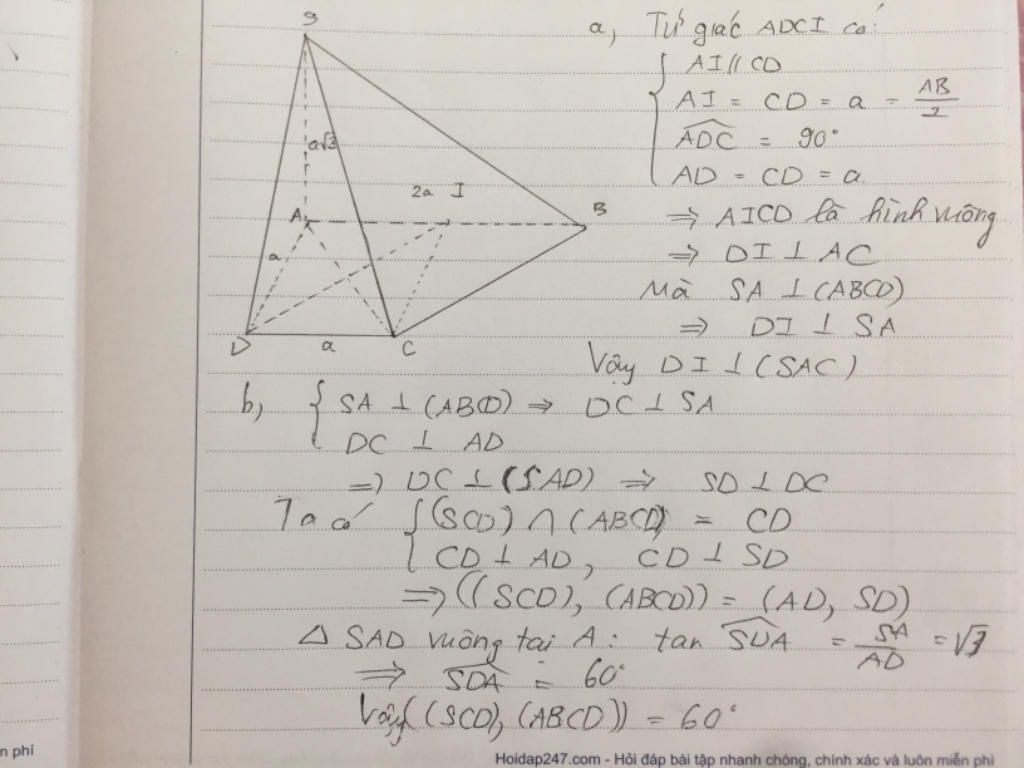 S
a√3
2a I
A
B
a
D
a
C
a, Tứ giác ADCI có:
AI // CD
AI = CD = a = AB/2
ADC = 90°
AD = CD = a
⇒ AICD là hình vuông
⇒ DI ⊥ AC
Mà SA ⊥ (ABCD)
⇒ DI ⊥ SA
Vậy DI ⊥ (SAC)
b, { SA ⊥ (ABCD) ⇒ DC ⊥ SA
DC ⊥ AD
=) DC ⊥ (SAD) ⇒ SD ⊥ DC
Ta có { (SCD) ∩ (ABCD) = CD
CD ⊥ AD, CD ⊥ SD
⇒ ((SCD), (ABCD)) = (AD, SD)
Δ SAD vuông tại A: tan SDA = SA/AD = √3
⇒ SDA = 60°
Vậy ((SCD), (ABCD)) = 60°
n phí
Hoidap247.com - Hỏi đáp bài tập nhanh chóng, chính xác và luôn miễn phí